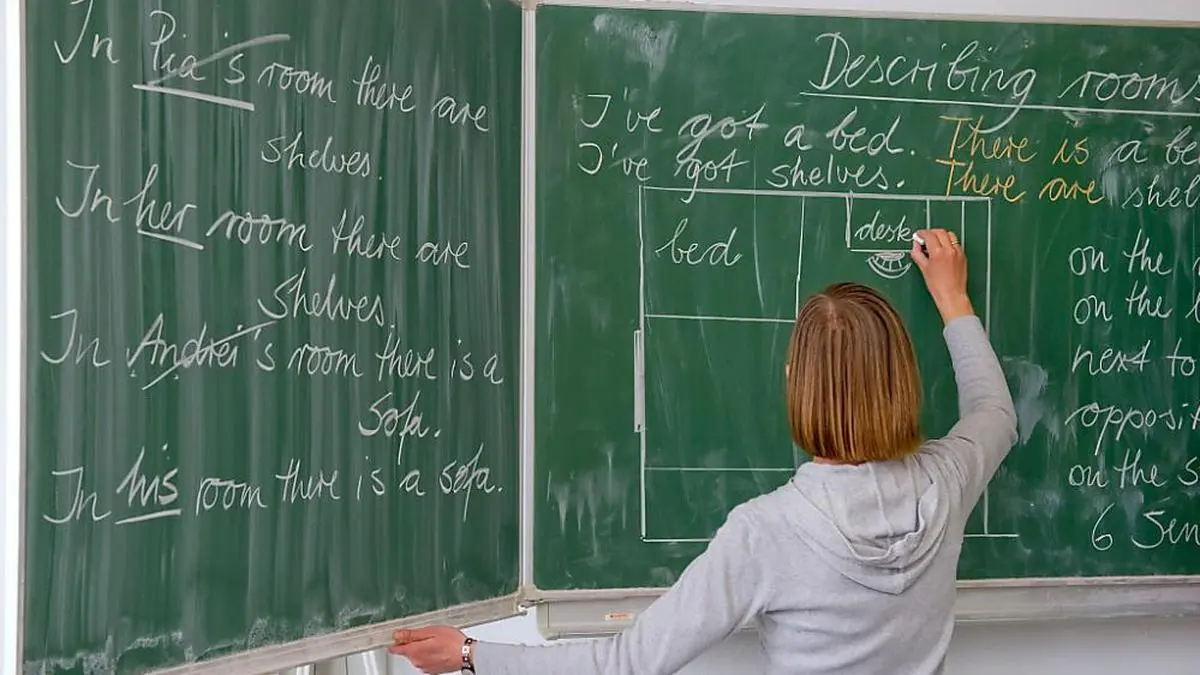 In Pia's room there are
shelves.
In her room there are
Shelves.
In Andrei's room there is a
Sofa.
In his room there is a sofa.
Describing room
I've got a bed. There is a be
I've got shelves. There are shel
bed
desk
on the
on the
next to
opposit
on the S
6 Sen